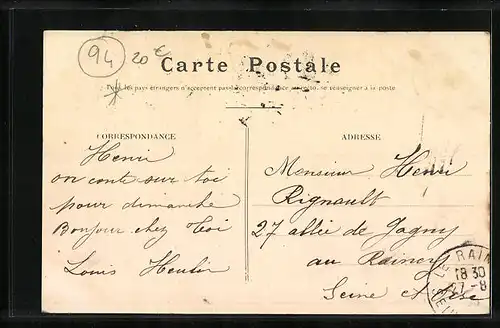 94 20 €
Carte Postale
Tous les pays étrangers n'acceptent pas la correspondance au recto. se renseigner à la poste
CORRESPONDANCE
ADRESSE
Henri
on conte sur toi
pour dimanche
Bonjour chez toi
Louis Heulin
Monsieur Henri
Rignault
27 allée de Gagny
au Raincy
Seine et Oise
LE RAIN
18 30
27 - 8